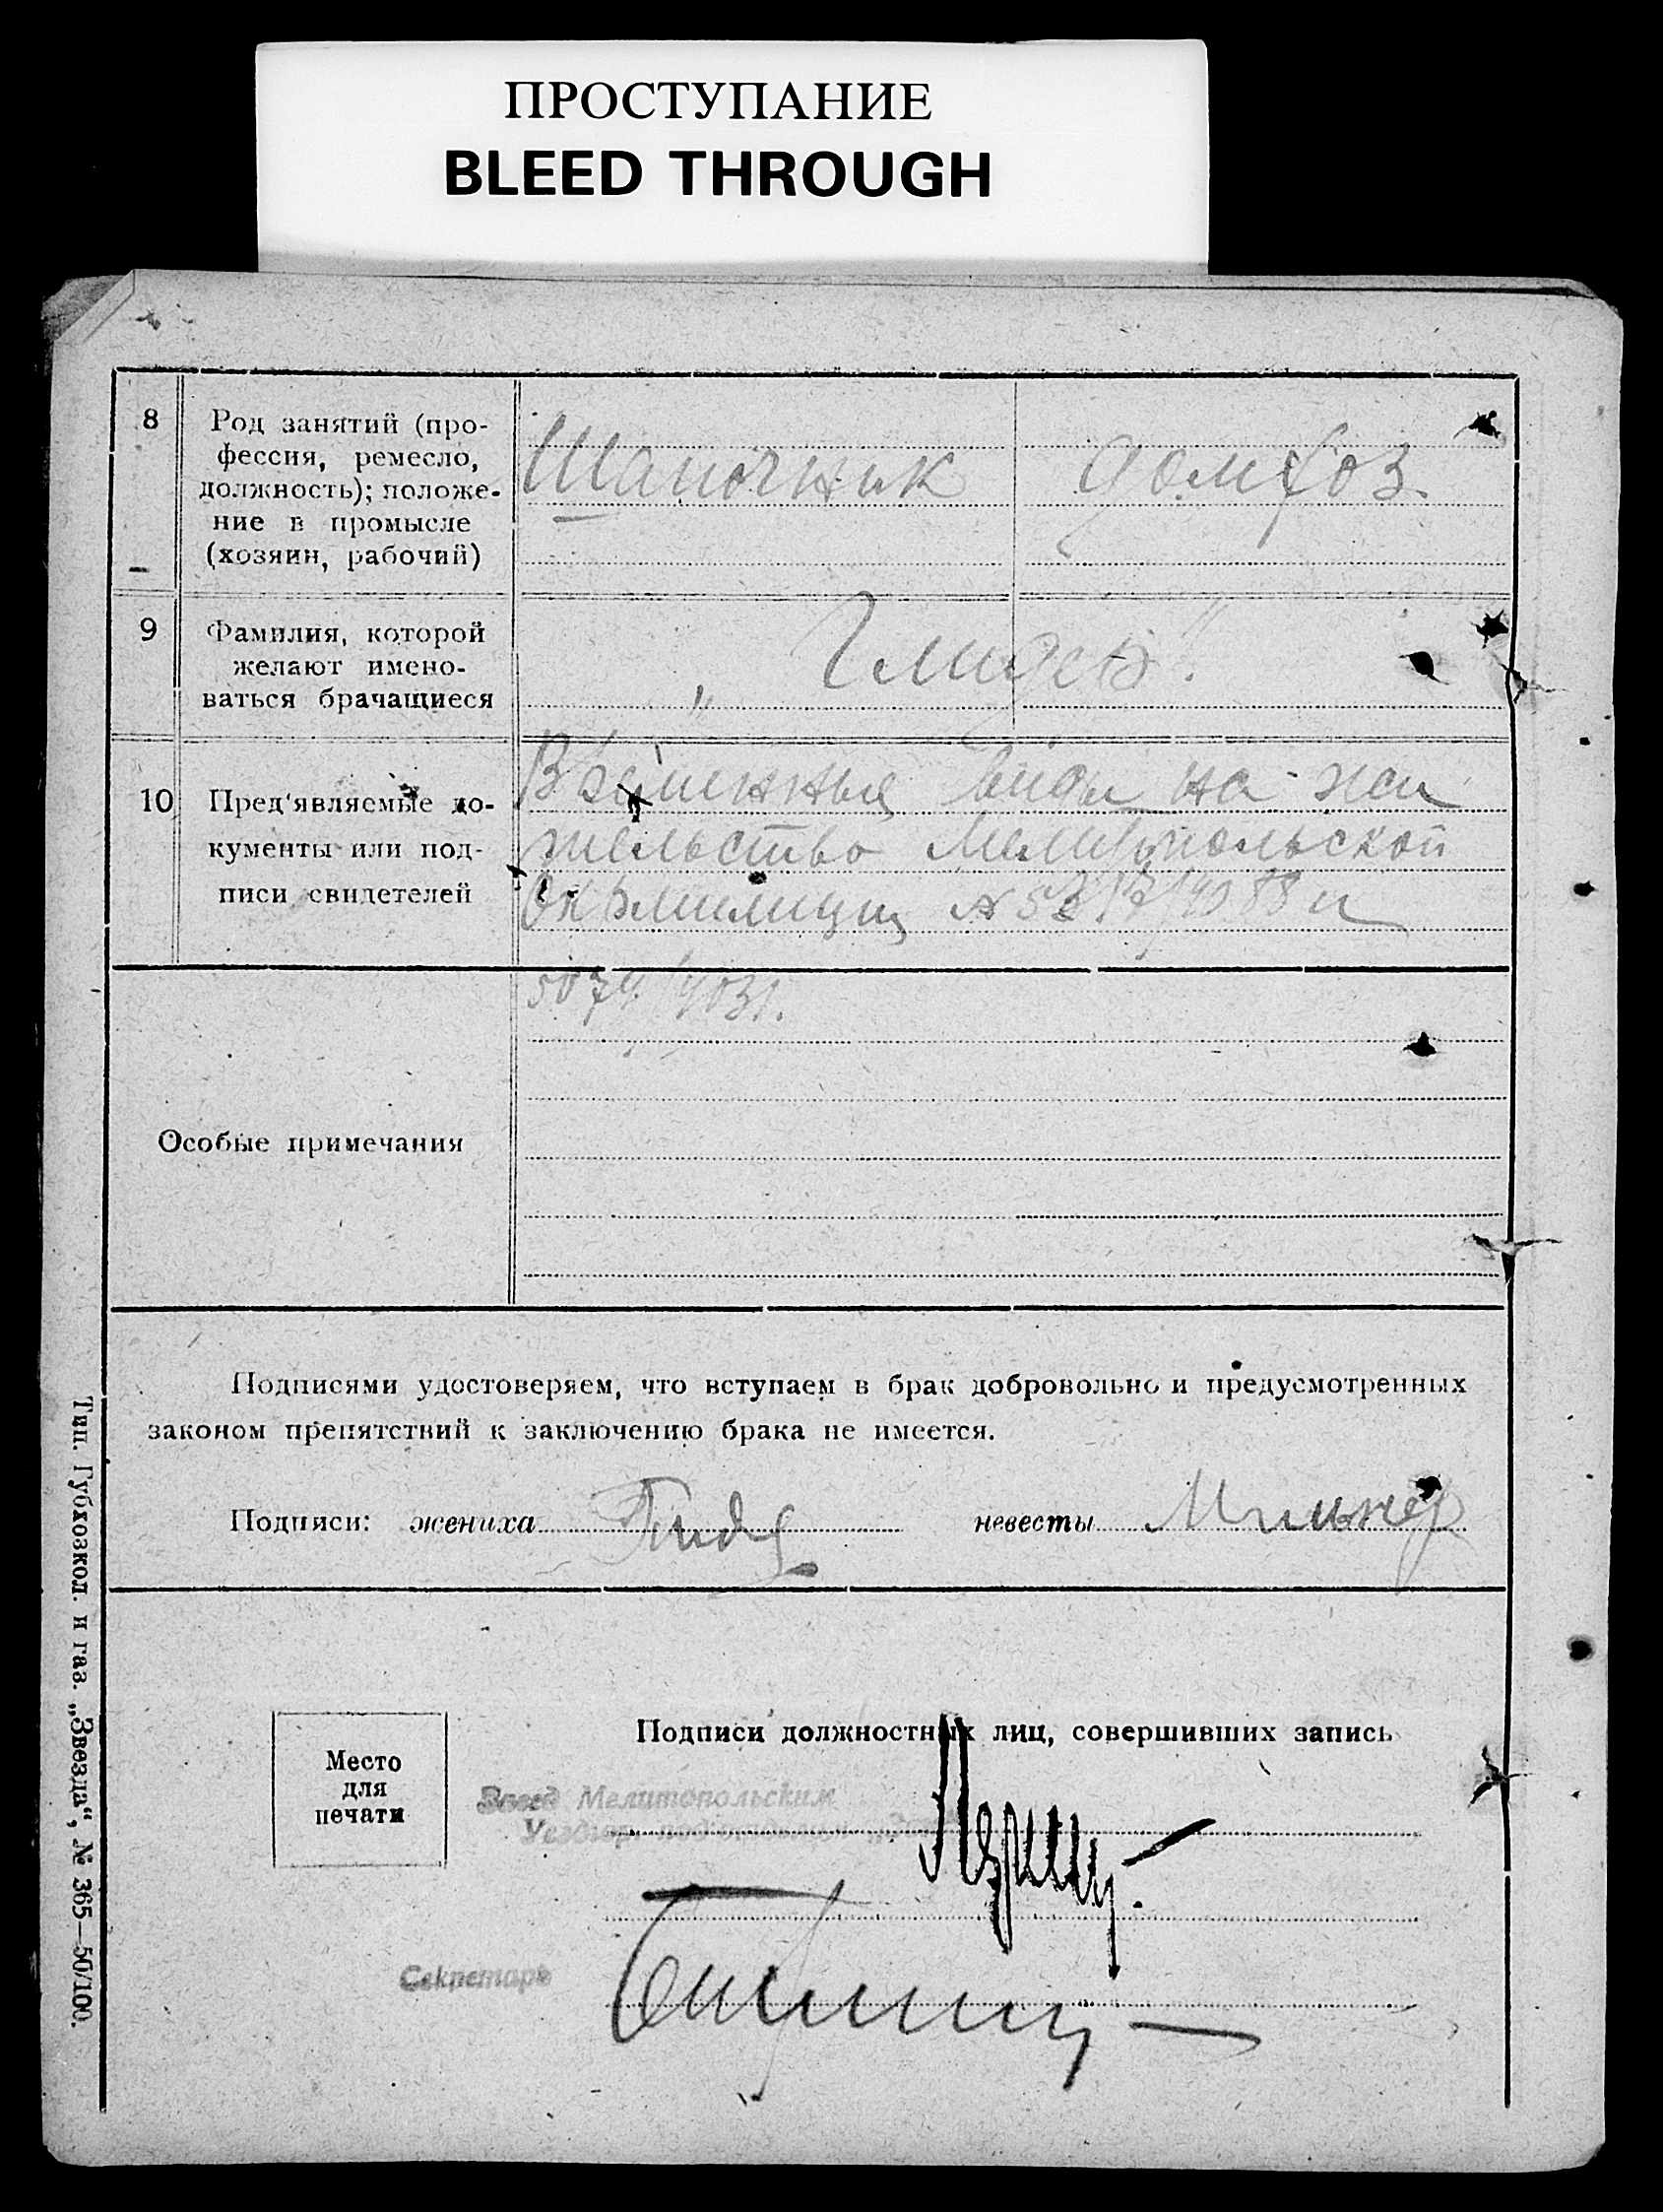 ПРОСТУПАНИЕ
BLEED THROUGH
8
Род занятий (про-
фессия, ремесло,
должность); положе-
ние в промысле
(хозяин, рабочий)
Шапочник
домхоз.
9
Фамилия, которой
желают имено-
ваться брачащиеся
10
Пред'являемые до-
кументы или под-
писи свидетелей
Временныя виды на жи
тельство Мелитопольской
Окрмилиции
5074/4031.
Особые примечания
Подписями удостоверяем, что вступаем в брак добровольно и предусмотренных
законом препятствий к заключению брака не имеется.
Подписи: жениха
невесты Мильнер
Подписи должностных лиц, совершивших запись
Место
для
печати
Завед Мелитопольским
Секретарь
Тип. Губхозкол. и газ. „Звезда“, № 365—50/100.